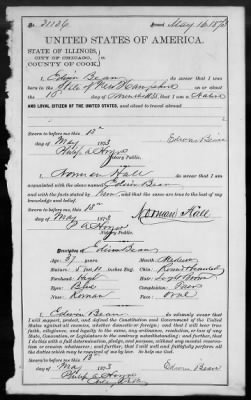 No. 21126 Issued May 16 1873
UNITED STATES OF AMERICA.
STATE OF ILLINOIS,
CITY OF CHICAGO, ss.
COUNTY OF COOK,
I Edwin Bean do swear that I was
born in the State of New Hampshire on
the 10 day of that I am a Native
AND LOYAL CITIZEN OF THE UNITED STATES, and about to travel abroad.
Sworn to before me this 13th
day of May 1873 Edwin Bean
Philip A Hoyne
Notary Public.
I Norman Hall do swear that I am
acquainted with the above named Edwin Bean
and with the facts stated by him, and that the same are true to the best of my
knowledge and belief.
Sworn to before me this 13th
day of May 1873 Norman Hall
P A Hoyne
Notary Public.
Description of Edwin Bean
Age: 37 years Mouth: Medium
Stature: 5 ft inches Eng. Chin:
Forehead: Hair:
Eyes: Blue Complexion:
Nose: Roman Face: Oval
I Edwin Bean do solemnly swear that I
will support, protect, and defend the Constitution and Government of the United
States against all enemies, whether domestic or foreign; and that I will bear true
faith, allegiance, and loyalty to the same, any ordinance, resolution, or law of any
State, Convention, or Legislature to the contrary notwithstanding; and further, that
I do this with a full determination, pledge, and purpose, without any mental
reservation or evasion whatsoever; and further, that I will well and faithfully perform all
the duties which may be required of me by law.
Sworn to before me this 13th
day of May 1873 Edwin Bean
Philip A Hoyne